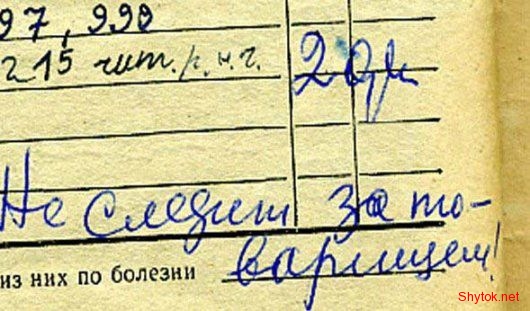 97, 990
215 чит. р. н. г. 2
Не следит за то-
варищем!
из них по болезни
Shytok.net